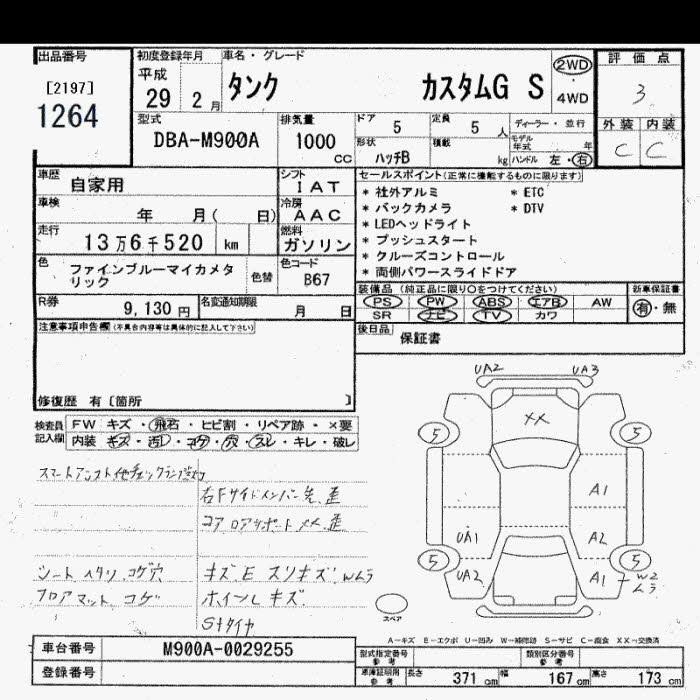 出品番号
[2197]
1264
初度登録年月
平成
29 2月
車名・グレード
タンク カスタムG S
2WD
4WD
評価点
3
外装 内装
C C
型式
DBA-M900A
排気量
1000 cc
ドア
5
定員
5 人
形状
ハッチB
積載
kg
ディーラー・並行
モデル年式 年
ハンドル 左・右
車歴
自家用
シフト
IAT
車検
年 月( 日)
冷房
AAC
走行
13万6千520 km
燃料
ガソリン
色
ファインブルーマイカメタリック
色替
色コード
B67
R券
9,130円
名変通知期限
月 日
セールスポイント(正常に機能するものに限ります)
* 社外アルミ * ETC
* バックカメラ * DTV
* LEDヘッドライト
* プッシュスタート
* クルーズコントロール
* 両側パワースライドドア
装備品(純正品に限り○をつけてください)
PS PW ABS エアB AW
SR ナビ TV カワ
新車保証書
有・無
後日品
保証書
注意事項申告欄(不具合内容等は具体的に記入して下さい)
修復歴 有[箇所 ]
検査員記入欄
FW キズ・飛石・ヒビ割・リペア跡・×要
内装 キズ・汚レ・コゲ・穴・スレ・キレ・破レ
スマートアシスト他チェックランプ点灯
右Fサイドメンバー先、歪
コアロアサポートXX、歪
シート ヘタリ、コゲ穴
フロアマット コゲ
キズ、E スリキズ、Wムラ
ホイール キズ
Sタイヤ
UA2 UA3
XX
5 5
A1
UA1 A2
5 5
UA2 A1 W2
ムラ
スペア
A-キズ E-エクボ U-凹み W-補修跡 S-サビ C-腐食 XX-交換済
車台番号
M900A-0029255
登録番号
型式指定番号
参考
類別区分番号
参考
車庫証明用
参考
長さ 371 cm 幅 167 cm 高さ 173 cm